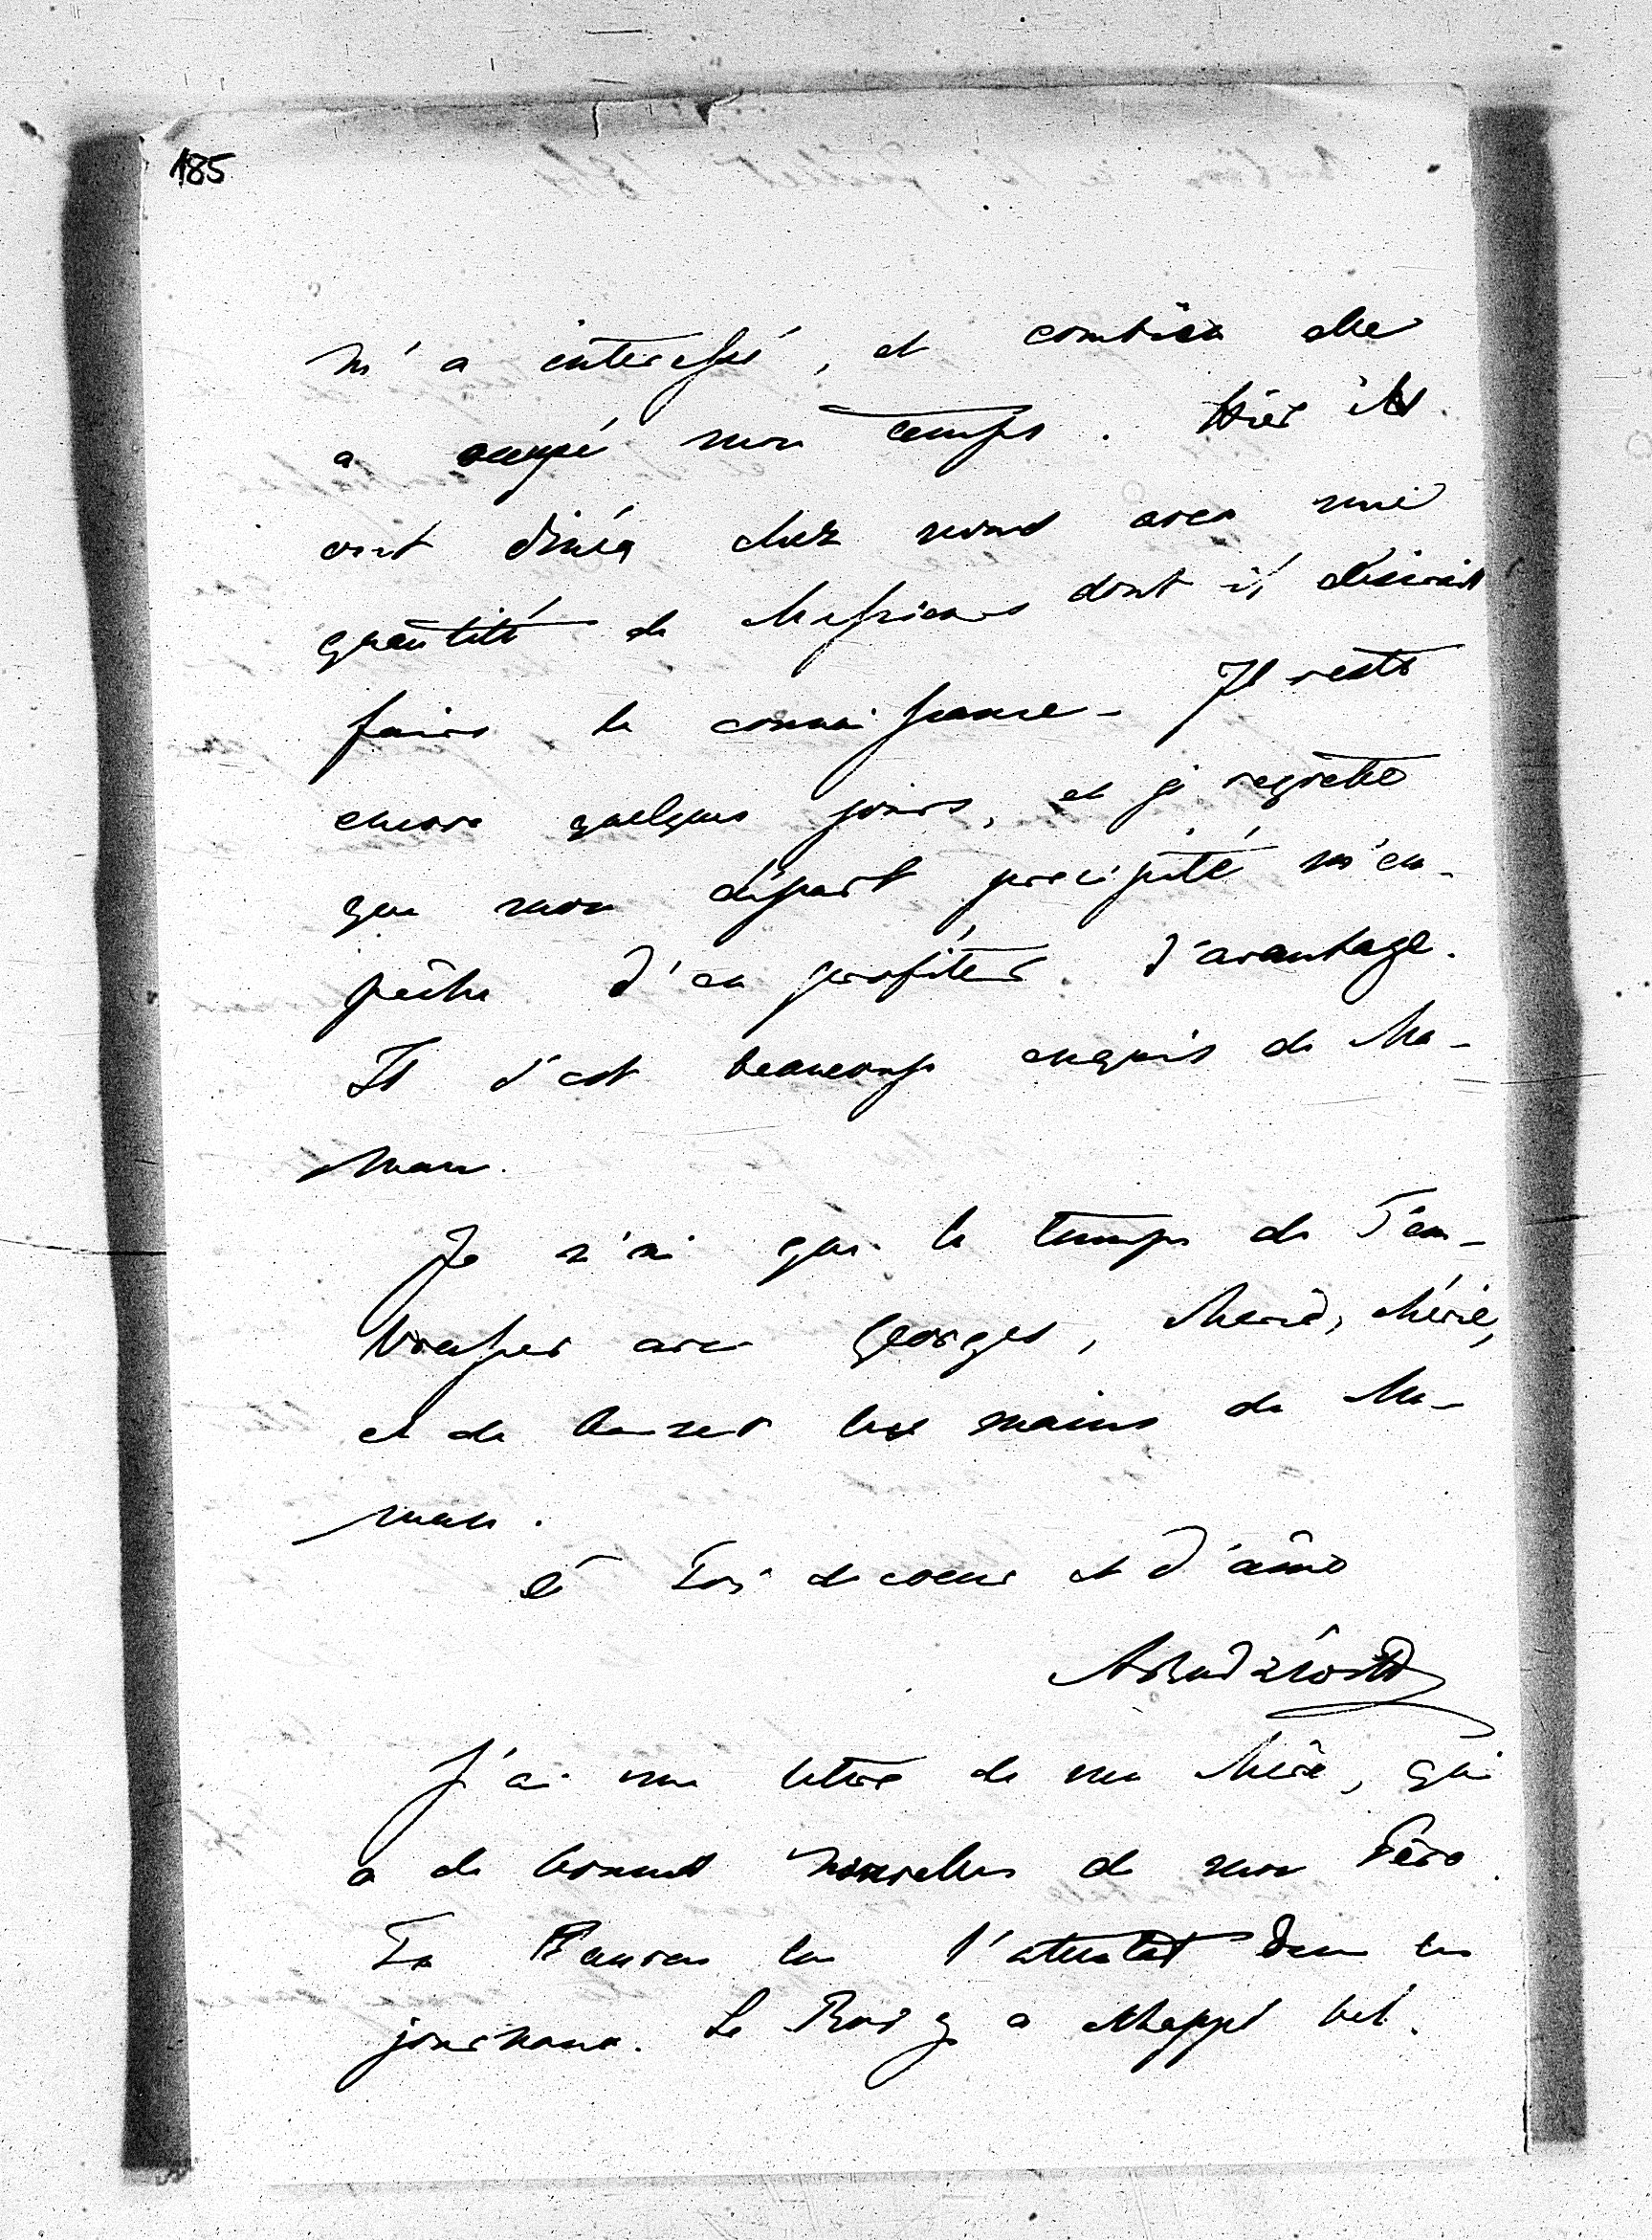 185
m'a interessé, et combien elle
a occupé mon temps. Hier ils
ont dinés chez nous avec une
quantité de Messieurs dont il désirait
faire la connaissance - Il reste
encore quelques jours, et je regrette
que mon départ précipité m'em-
pêche d'en profiter d'avantage.
Il s'est beaucoup enquis de Ma-
man.
Je n'ai que le temps de T'em-
brasser avec Georges, Marie, Chérie,
et de baiser les mains de Ma-
man.
à Toi de coeur et d'âme
J'ai une lettre de ma Mère, qui
a de bonnes nouvelles de mon Père.
Tu auras lu l'attentat dans les
journaux. Le Roi y a échappé bel.